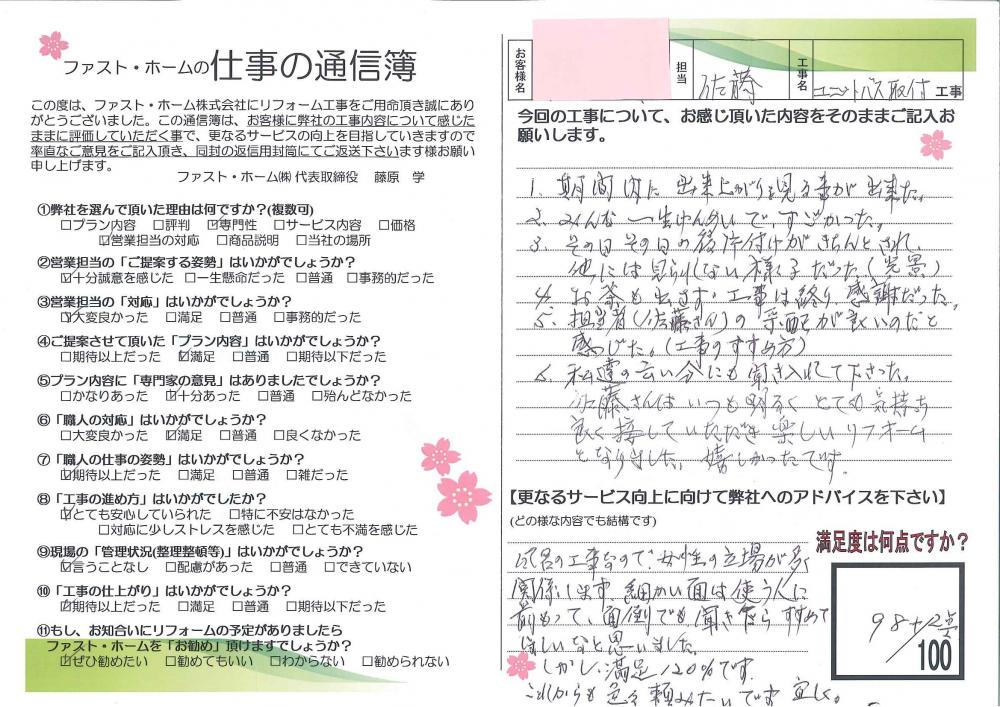 ファスト・ホームの仕事の通信簿
この度は、ファスト・ホーム株式会社にリフォーム工事をご用命頂き誠にあり
がとうございました。この通信簿は、お客様に弊社の工事内容について感じた
ままに評価していただく事で、更なるサービスの向上を目指していきますので
率直なご意見をご記入頂き、同封の返信用封筒にてご返送下さいます様お願い
申し上げます。
ファスト・ホーム㈱ 代表取締役 藤原 学
①弊社を選んで頂いた理由は何ですか?(複数可)
□プラン内容 □評判 ☑専門性 □サービス内容 □価格
☑営業担当の対応 □商品説明 □当社の場所
②営業担当の「ご提案する姿勢」はいかがでしょうか?
☑十分誠意を感じた □一生懸命だった □普通 □事務的だった
③営業担当の「対応」はいかがでしょうか?
☑大変良かった □満足 □普通 □事務的だった
④ご提案させて頂いた「プラン内容」はいかがでしょうか?
□期待以上だった ☑満足 □普通 □期待以下だった
⑤プラン内容に「専門家の意見」はありましたでしょうか?
□かなりあった ☑十分あった □普通 □殆んどなかった
⑥「職人の対応」はいかがでしょうか?
□大変良かった ☑満足 □普通 □良くなかった
⑦「職人の仕事の姿勢」はいかがでしょうか?
☑期待以上だった □満足 □普通 □雑だった
⑧「工事の進め方」はいかがでしたか?
☑とても安心していられた □特に不安はなかった
□対応に少しストレスを感じた □とても不満を感じた
⑨現場の「管理状況(整理整頓等)」はいかがでしょうか?
☑言うことなし □配慮があった □普通 □できていない
⑩「工事の仕上がり」はいかがでしょうか?
☑期待以上だった □満足 □普通 □期待以下だった
⑪もし、お知合いにリフォームの予定がありましたら
ファスト・ホームを「お勧め」頂けますでしょうか?
☑ぜひ勧めたい □勧めてもいい □わからない □勧められない
お客様名 担当 佐藤 工事名 ユニットバス取付 工事
今回の工事について、お感じ頂いた内容をそのままご記入お
願いします。
1. 期間内に出来上がりを見る事が出来た。
2. みんな一生けんめいで、すごかった。
3. その日その日の後片付けがきちんとされ、
他には見られない様子だった(光景)
4. お茶も出さず、工事は終り、感謝だった。
5. 担当者(佐藤さん)の采配が良いのだと
感じた。(工事のすすめ方)
6. 私達の言い分にも聞き入れて下さった。
佐藤さんはいつも明るくとても気持ち
良く接していただき楽しいリフォーム
となりました。嬉しかったです。
【更なるサービス向上に向けて弊社へのアドバイスを下さい】
(どの様な内容でも結構です)
の工事なので、女性の立場が多く
関係します。細かい面は使う人に
前もって、面倒でも聞きながらすすめて
ほしいなと思いました。
しかし、満足120%です。
これからも色々頼みたいです 宜しく。
満足度は何点ですか?
98+12点
/100